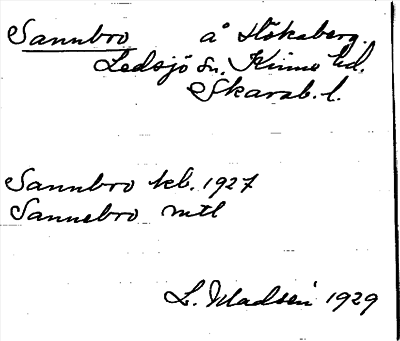 Sannbro å Hökaberg.
Ledsjö sn. Kinne hd.
Skarab. l.
Sannbro kb. 1927
Sannebro mtl
L. Madsén 1929